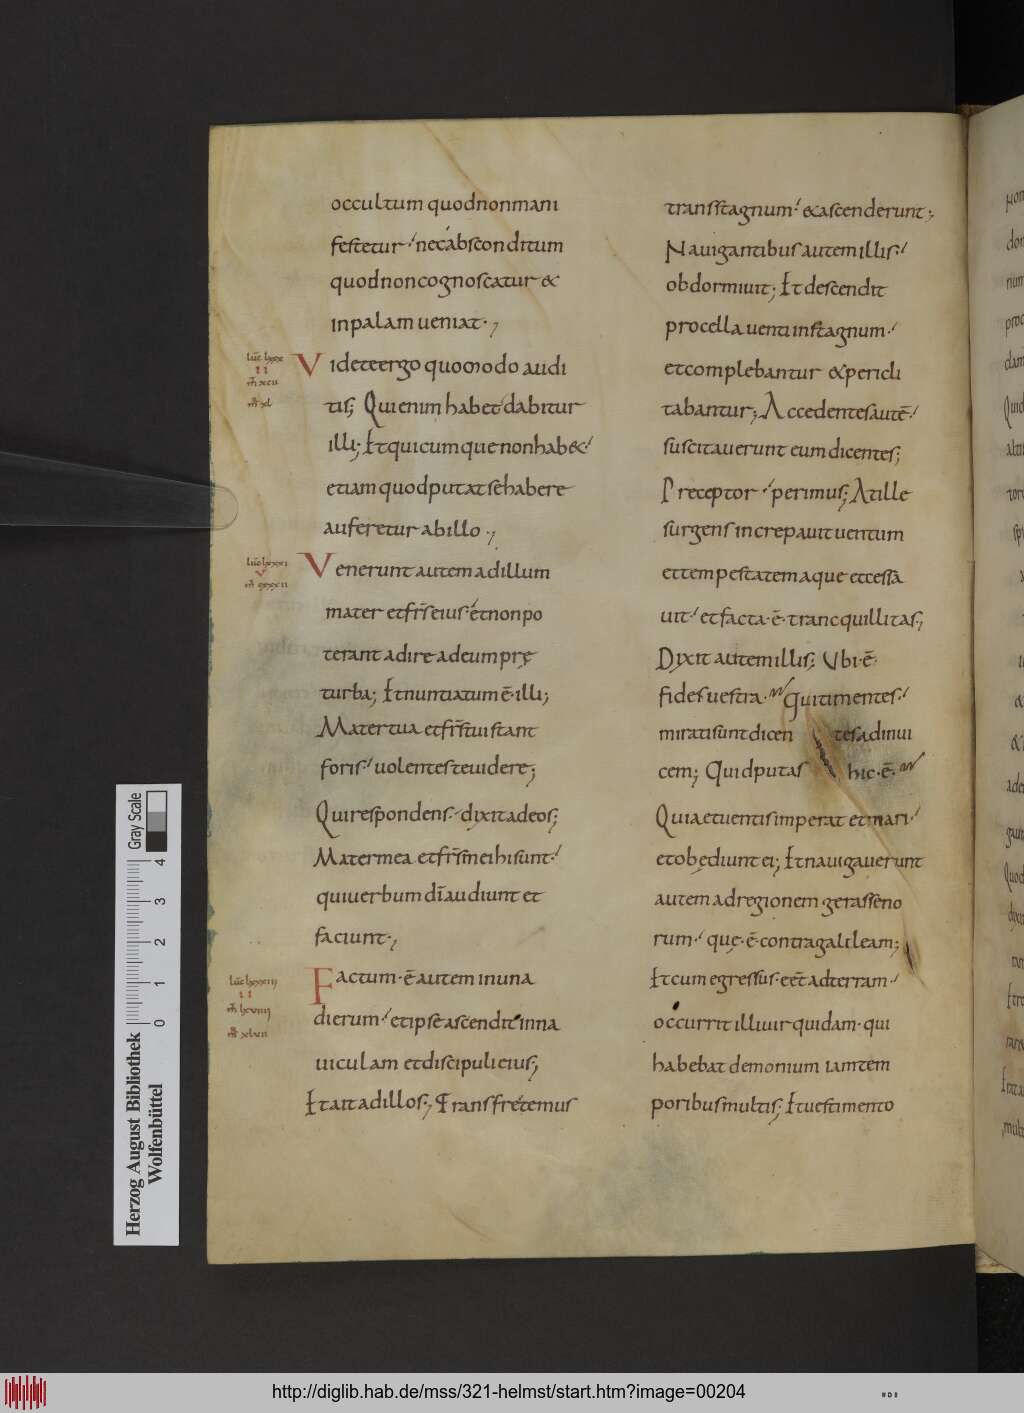 occultum quod non mani
festetur nec absconditum
quod non cognoscatur &
in palam ueniat.
luc lxxx
II
Videte ergo quomodo audi
m xcii
m xl
tis; Qui enim habet dabitur
illi; Et quicumque non hab&
etiam quod putat se habere
auferetur ab illo.
luc lxxxi
V
Venerunt autem ad illum
mater et frs eius et non po
terant adire ad eum prę
turba; Et nuntiatum ē illi;
Mater tua et frs tui stant
foris uolentes te uidere;
Qui respondens dixit ad eos;
Mater mea et frs mei hi sunt
qui uerbum dī audiunt et
faciunt.
II
Factum ē autem in una
dierum et ipse ascendit in na
uiculam et discipuli eius;
Et ait ad illos; Transfretemus
trans stagnum & ascenderunt;
Nauigantibus autem illis
obdormiuit; Et descendit
procella uenti in stagnum
et complebantur & pericli
tabantur; Accedentes autē
suscitauerunt eum dicentes;
Preceptor perimus; At ille
surgens increpauit uentum
et tempestatem aque et cessa
uit et facta ē trancquillitas;
Dixit autem illis; Ubi ē
fides uestra Qui timentes
mirati sunt dicentes ad inui
cem; Quid putas hic ē
Quia et uentis imperat et mari
et obędiunt ei; Et nauigauerunt
autem ad regionem gerasseno
rum quę ē contra galileam;
Et cum egressus eēt ad terram
occurrit illi uir quidam qui
habebat demonium iam tem
poribus multis; Et uestimento
Herzog August Bibliothek
Wolfenbüttel
0 1 2 3 4
Gray Scale
http://diglib.hab.de/mss/321-helmst/start.htm?image=00204